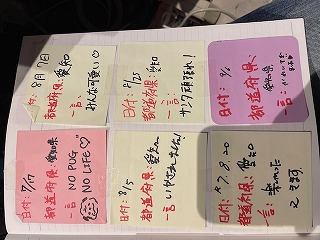 日付: 8月7日
都道府県: 愛知
一言: みんな可愛い♡
日付: 8/25
都道府県: 愛知
一言: サンタ頑張れ!
日付: 9/1
都道府県: 愛知県
一言:
日付: 7/17
都道府県: 愛知県
一言: NO PUG
NO LIFE♡
日付: 8/15
都道府県: 愛知
一言 いやされました!
日付: R7.8.20
都道府県: 愛知
一言: 楽しかった
又きます。